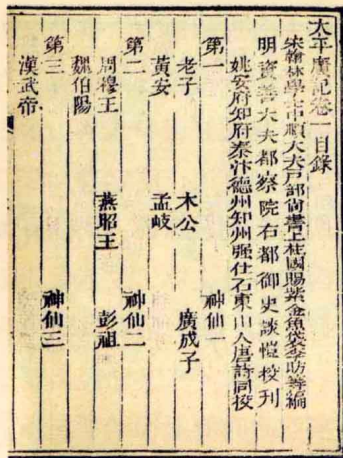 太平廣記卷一目錄
宋翰林學士中順大夫戶部尚書上柱國賜紫金魚袋李昉等編
明資善大夫都察院右都御史談愷校刊
姚安府知府秦汴德州知州强仕石東山人唐詩同校
第一 神仙一
老子 木公 廣成子
黃安 孟岐
第二 神仙二
周穆王 燕昭王 彭祖
魏伯陽
第三 神仙三
漢武帝